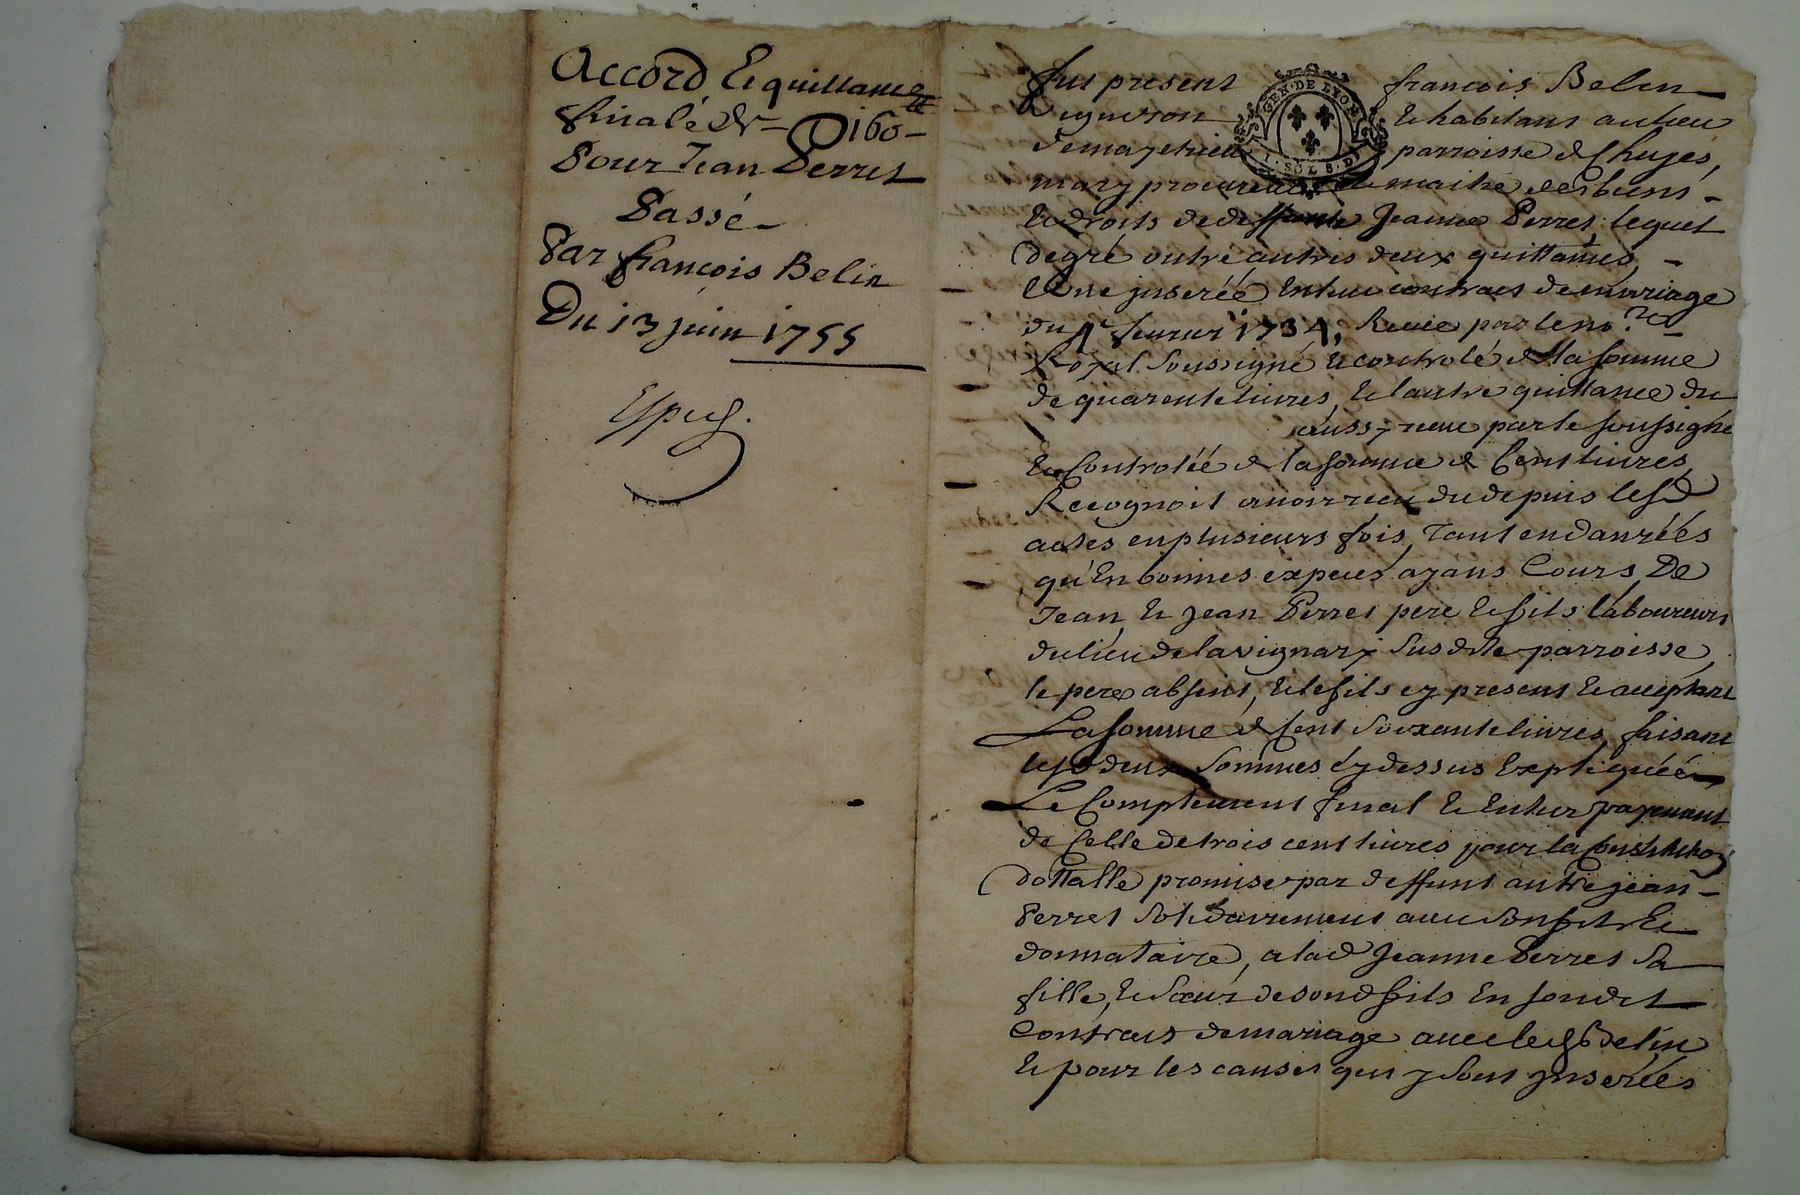 Accord Et quittance
finale de 160 ₶
Pour Jean Perret
Passé
Par françois Belin
Du 13 juin 1755
GEN · DE LYON
1 · SOL 8 · D
fut present françois Belin
Vigneron Et habitant au lieu
de parroisse de Chuyes,
mary procureur maitre des biens
Et droits de deffunte Jeanne Perret, lequel
de gré outre autres deux quittances,
L'une inserée En leur contract de mariage
du fevrier 1734, Receue par le no.re
Royal soussigné Et controlé de la somme
de quarente livres, Et l'autre quittance du
aussy receue par le soussigné
Et Controlée de la somme de Cent livres,
Recognoit avoir receu du depuis lesd
actes en plusieurs fois, Tant en danrées
qu'En bonnes expeces ayans Cours, De
Jean Et Jean Perret pere Et fils laboureurs
du lieu de lavignary susdite parroisse,
le pere absent, Et le fils cy present Et acceptant
La somme de Cent soixante livres, faisant
lesd deux sommes cy dessus Expliquées
Le Complement final Et Entier payement
de Celle de trois cent livres pour la Constitution
dottalle promise par deffunt autre jean
Perret solidairement avec son fils Et
donnataire, a lad Jeanne Perret sa
fille, Et sœur de sond fils En sondit
Contract de mariage avec led Belin
Et pour les causes qui y sont inserées